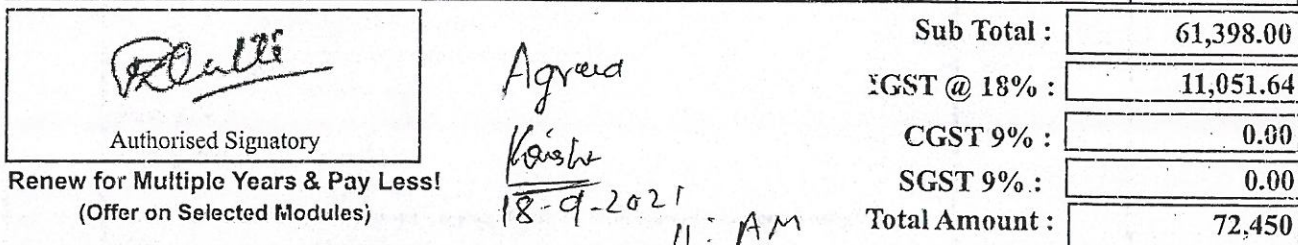 Authorised Signatory
Renew for Multiple Years & Pay Less!
(Offer on Selected Modules)
Agreed
18-9-2021
11: AM
Sub Total : 61,398.00
IGST @ 18% : 11,051.64
CGST 9% : 0.00
SGST 9% : 0.00
Total Amount : 72,450